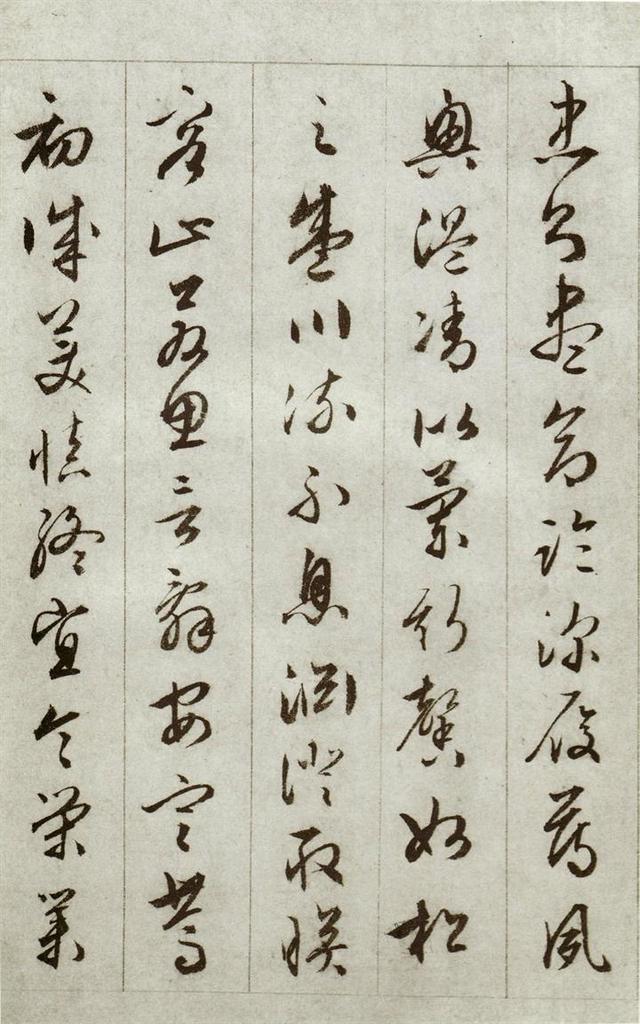 忠則盡命臨深履薄夙
興溫凊似蘭斯馨如松
之盛川流不息淵澄取暎
容止若思言辭安定篤
初誠美慎終宜令榮業